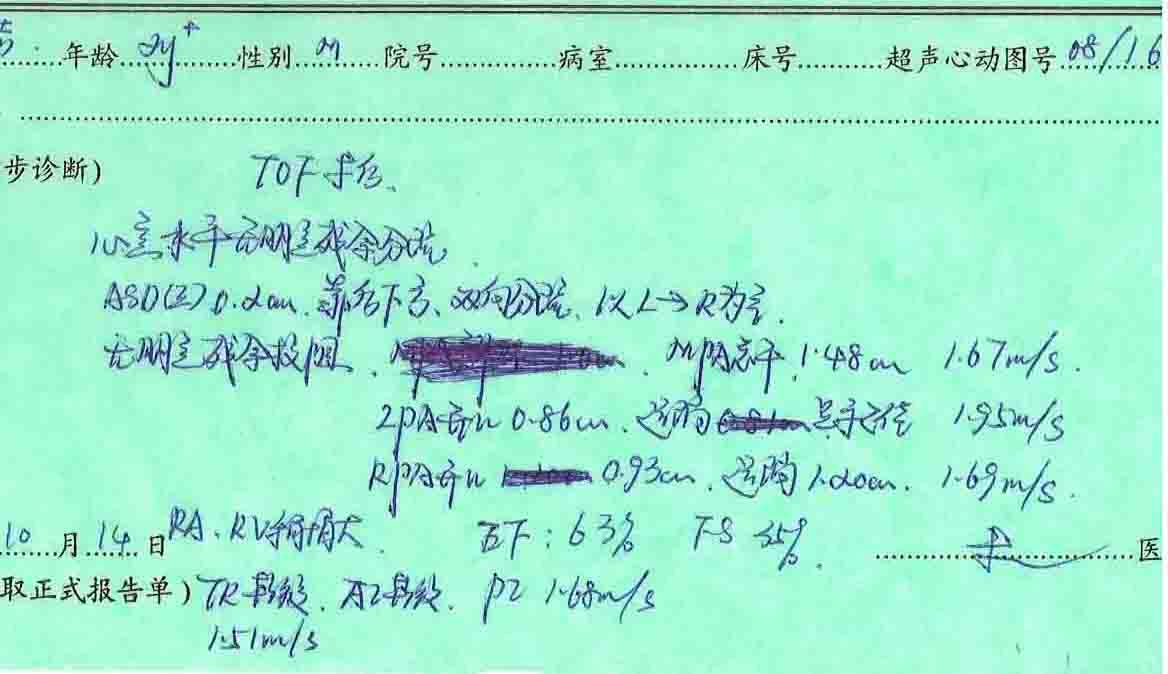 年龄 2y+ 性别 M 院号 病室 床号 超声心动图号 08/16
步诊断)
TOF术后.
心室水平无明显残余分流.
ASD(Ⅱ) 0.2cm, 靠后下方、双向分流, 以L→R为主.
无明显残余梗阻. MPA水平 1.48cm 1.67m/s.
LPA开口 0.86cm. 1.95m/s
RPA开口 0.93cm. 1.20cm. 1.69m/s.
10月14日 RA、RV稍增大. EF: 63% FS 35%. 医
取正式报告单) TR轻微. AI轻微. PI 1.68m/s
1.51m/s